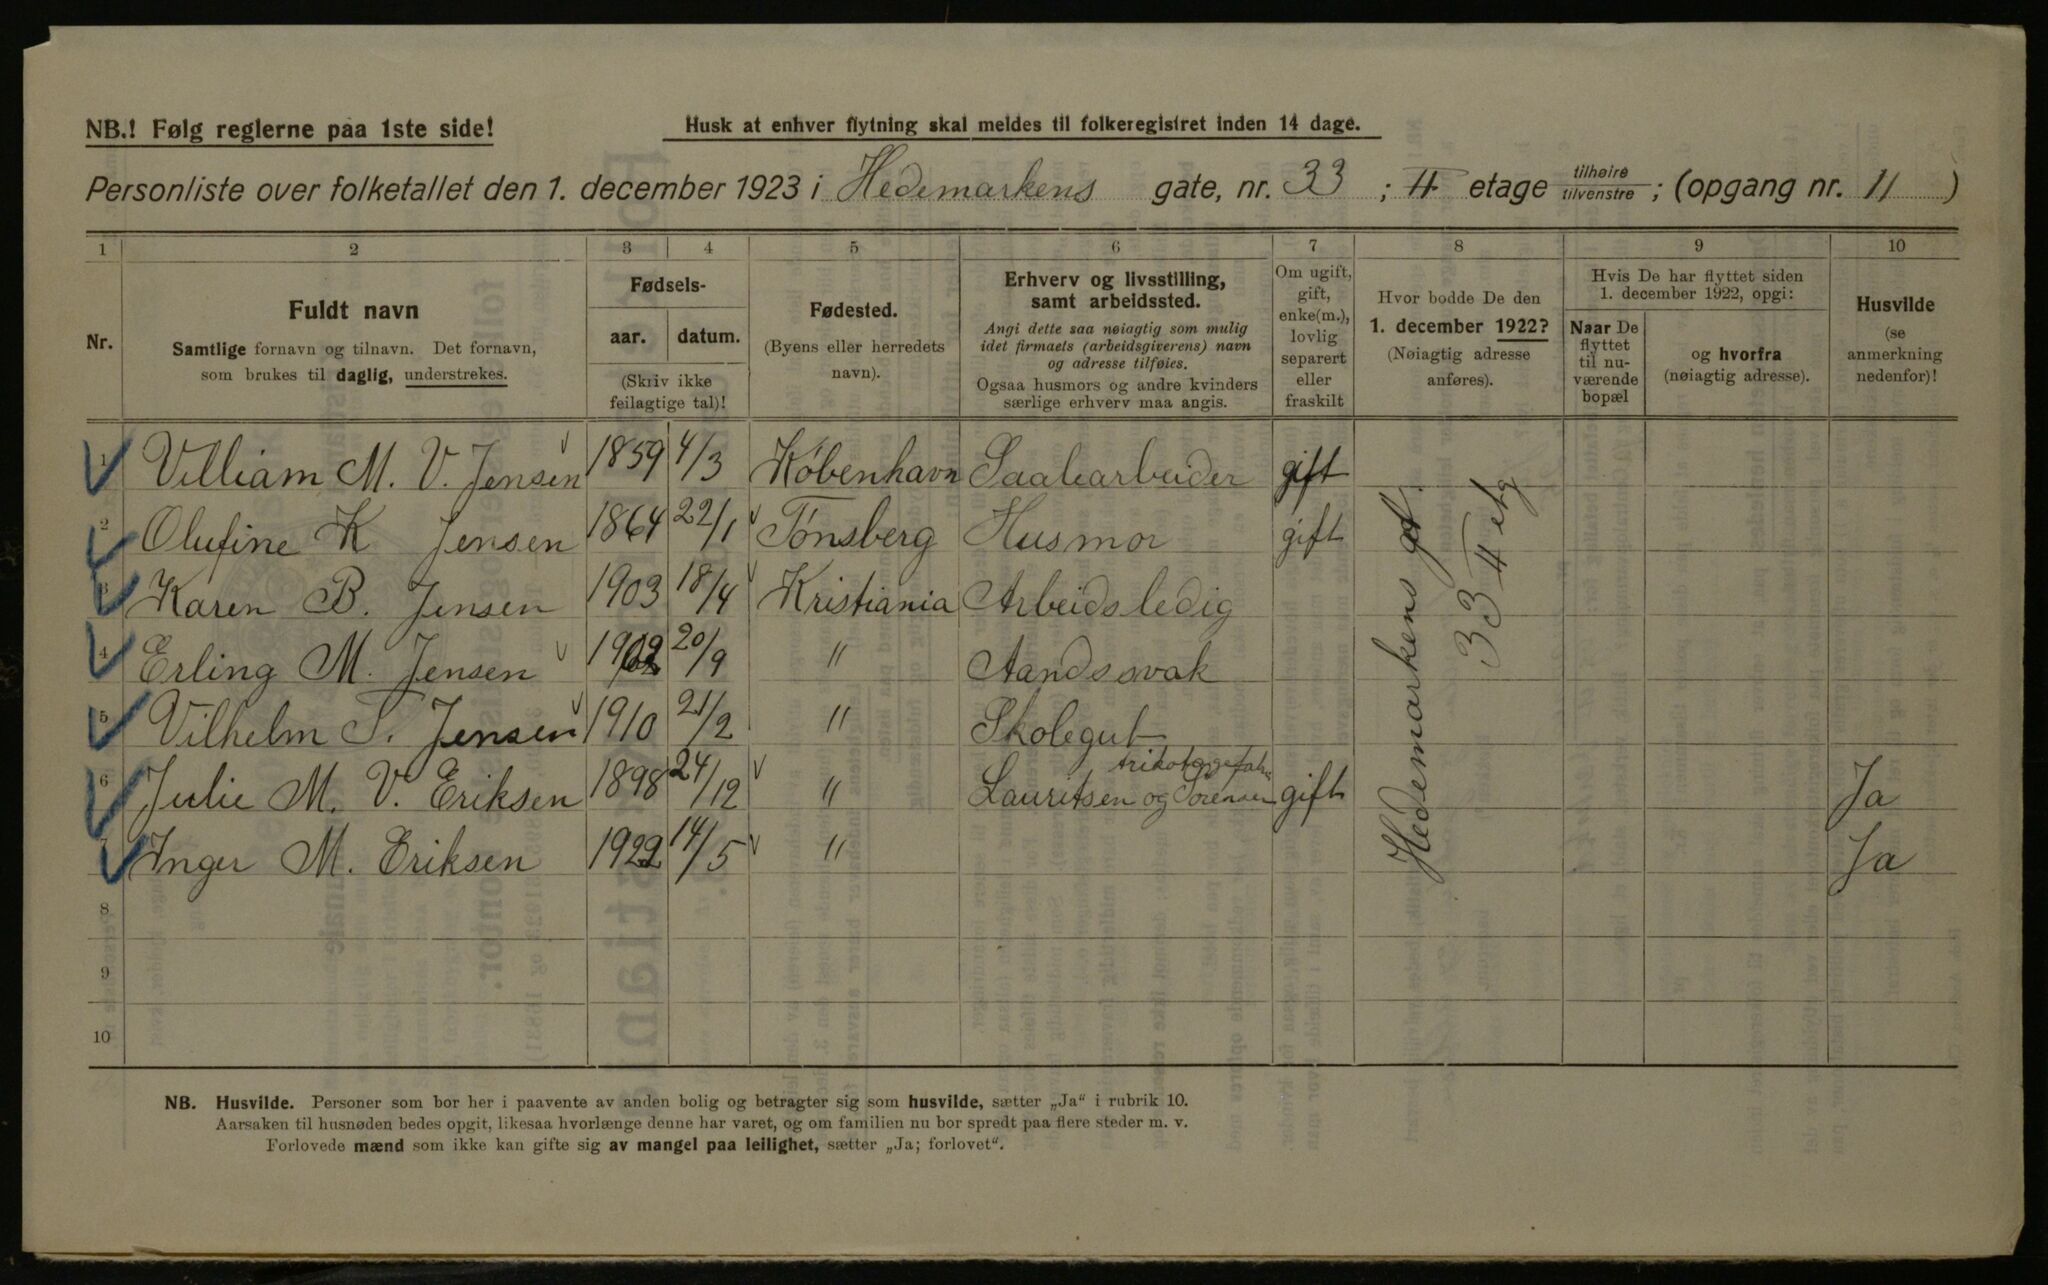 NB.! Følg reglerne paa 1ste side!
Husk at enhver flytning skal meldes til folkeregistret inden 14 dage.
Personliste over folketallet den 1. december 1923 i Hedemarkens gate, nr. 33 ; II etage tilhøire/tilvenstre ; (opgang nr. 11 )
1 2 3 4 5 6 7 8 9 10
Nr.
Fuldt navn
Samtlige fornavn og tilnavn. Det fornavn,
som brukes til daglig, understrekes.
Fødsels-
aar. datum.
(Skriv ikke
feilagtige tal)!
Fødested.
(Byens eller herredets
navn).
Erhverv og livsstilling,
samt arbeidssted.
Angi dette saa nøiagtig som mulig
idet firmaets (arbeidsgiverens) navn
og adresse tilføies.
Ogsaa husmors og andre kvinders
særlige erhverv maa angis.
Om ugift,
gift,
enke(m.),
lovlig
separert
eller
fraskilt
Hvor bodde De den
1. december 1922?
(Nøiagtig adresse
anføres).
Hvis De har flyttet siden
1. december 1922, opgi:
Naar De
flyttet
til nu-
værende
bopæl
og hvorfra
(nøiagtig adresse).
Husvilde
(se
anmerkning
nedenfor)!
1 Villiam M. V. Jensen 1859 4/3 København gift
2 Olufine K Jensen 1864 22/1 Tønsberg Husmor gift
3 Karen B. Jensen 1903 18/4 Kristiania Arbeidsledig
4 Erling M. Jensen 1902 20/9 " Aandssvak
5 Vilhelm T. Jensen 1910 21/2 " Skolegut
6 Julie M. V. Eriksen 1898 24/12 " Lauritsen og Sørensen gift Ja
7 Inger M. Eriksen 1922 14/5 " Ja
Hedemarkens gt.
33 II etg
8
9
10
NB. Husvilde. Personer som bor her i paavente av anden bolig og betragter sig som husvilde, sætter „Ja“ i rubrik 10.
Aarsaken til husnøden bedes opgit, likesaa hvorlænge denne har varet, og om familien nu bor spredt paa flere steder m. v.
Forlovede mænd som ikke kan gifte sig av mangel paa leilighet, sætter „Ja; forlovet“.